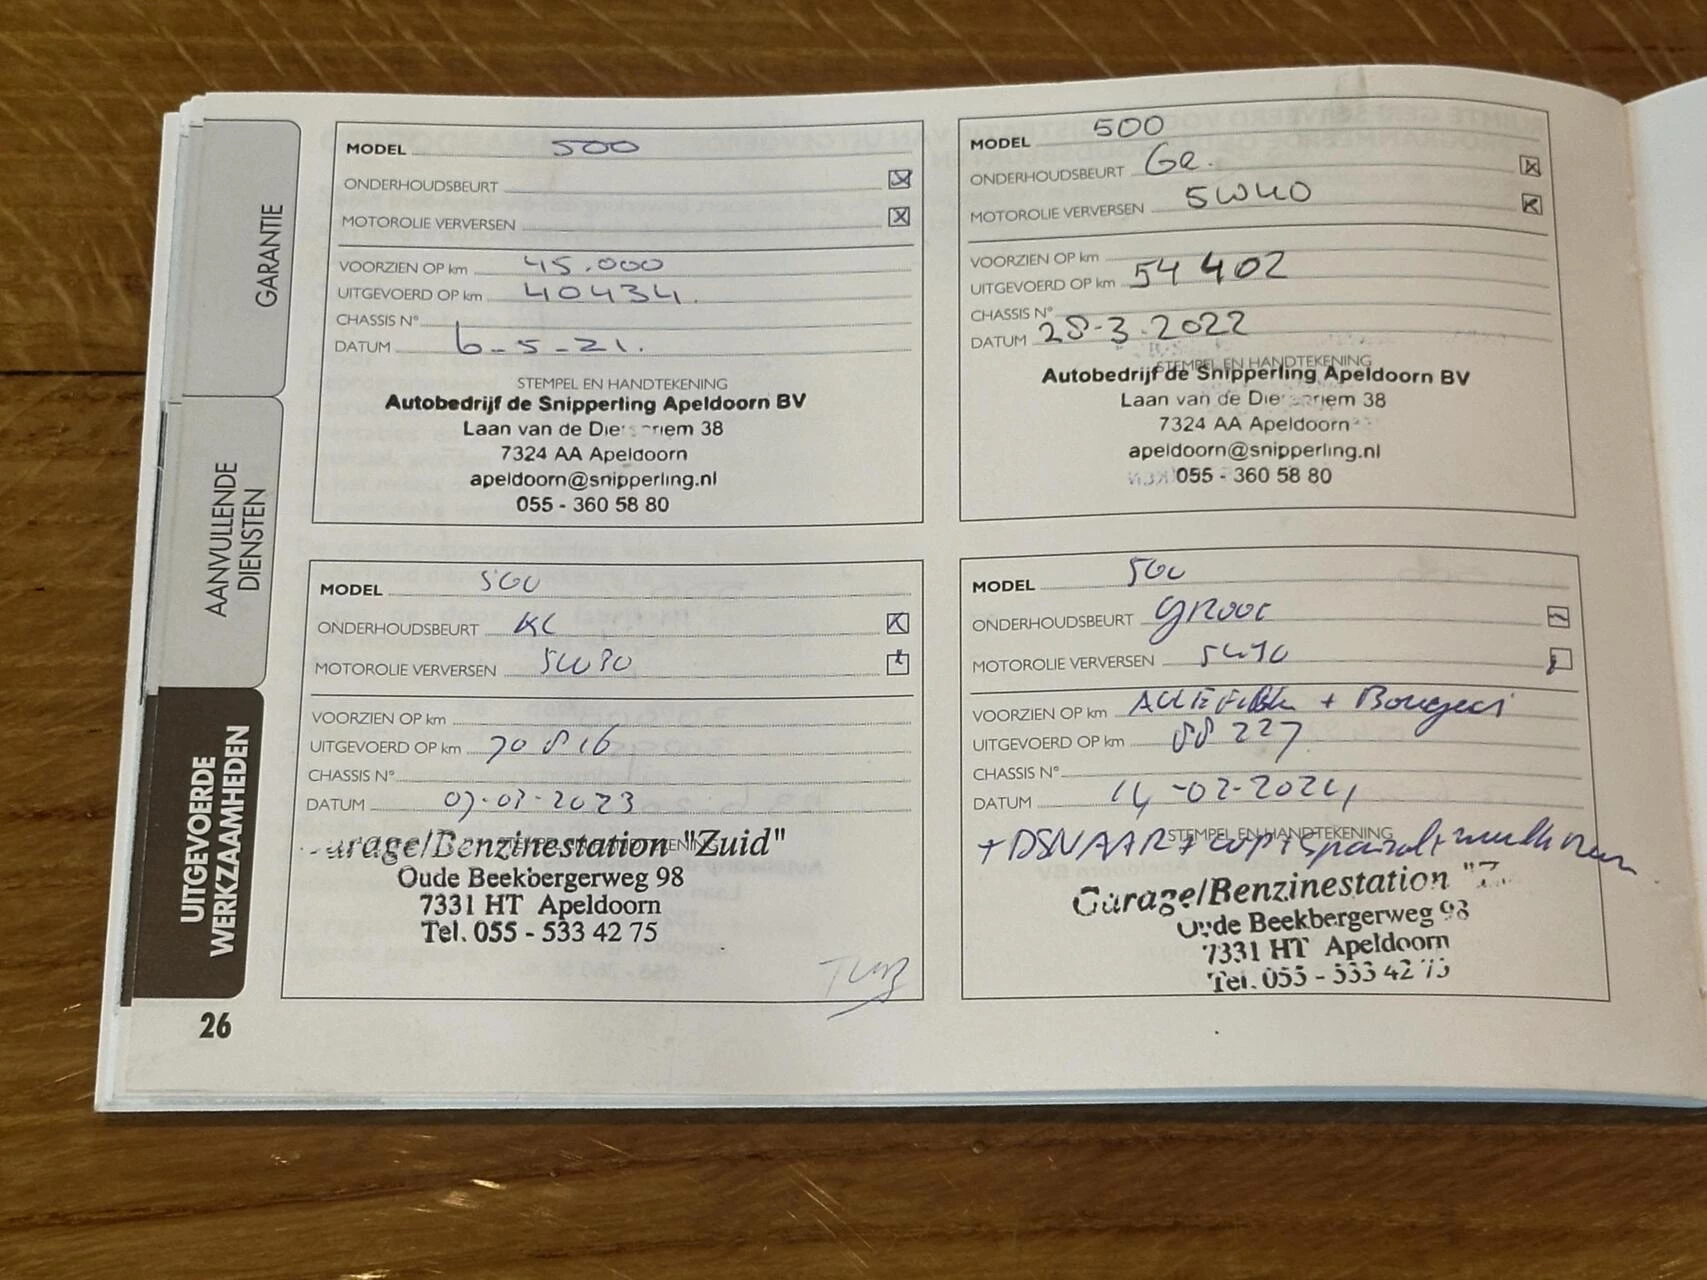 GARANTIE
AANVULLENDE
DIENSTEN
UITGEVOERDE
WERKZAAMHEDEN
26
MODEL 500
ONDERHOUDSBEURT
MOTOROLIE VERVERSEN
VOORZIEN OP km 45.000
UITGEVOERD OP km 40434.
CHASSIS N°
DATUM 6-5-21.
STEMPEL EN HANDTEKENING
Autobedrijf de Snipperling Apeldoorn BV
Laan van de Die riem 38
7324 AA Apeldoorn
apeldoorn@snipperling.nl
055 - 360 58 80
MODEL 500
ONDERHOUDSBEURT Gr.
MOTOROLIE VERVERSEN 5W40
VOORZIEN OP km
UITGEVOERD OP km 54402
CHASSIS N°
DATUM 28-3.2022
STEMPEL EN HANDTEKENING
Autobedrijf de Snipperling Apeldoorn BV
Laan van de Die riem 38
7324 AA Apeldoorn
apeldoorn@snipperling.nl
055 - 360 58 80
MODEL 500
ONDERHOUDSBEURT KL
MOTOROLIE VERVERSEN 5W30
VOORZIEN OP km
UITGEVOERD OP km 70816
CHASSIS N°
DATUM 07-03-2023
STEMPEL EN HANDTEKENING
Garage/Benzinestation "Zuid"
Oude Beekbergerweg 98
7331 HT Apeldoorn
Tel. 055 - 533 42 75
MODEL 500
ONDERHOUDSBEURT GROOT
MOTOROLIE VERVERSEN
VOORZIEN OP km ALLE Filters + Bougies
UITGEVOERD OP km 88227
CHASSIS N°
DATUM 14-02-2024
STEMPEL EN HANDTEKENING
+ DSNAAR +
Garage/Benzinestation
Oude Beekbergerweg 98
7331 HT Apeldoorn
Tel. 055 - 533 42 75